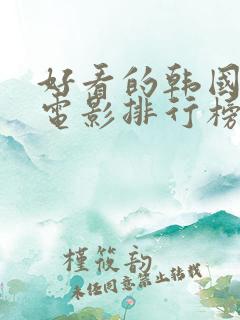 好看的韩國
電影排行榜
槿筱韵
未经同意禁止转载